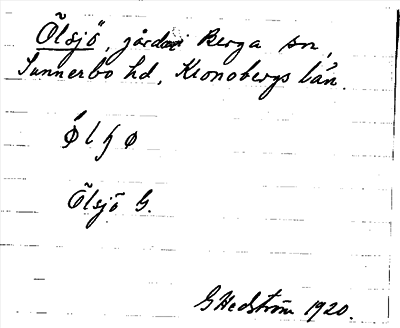 Ölsjö, gårdar i Berga sn,
Sunnerbo hd, Kronobergs län.
Ölsjö G.
G Hedström 1920.